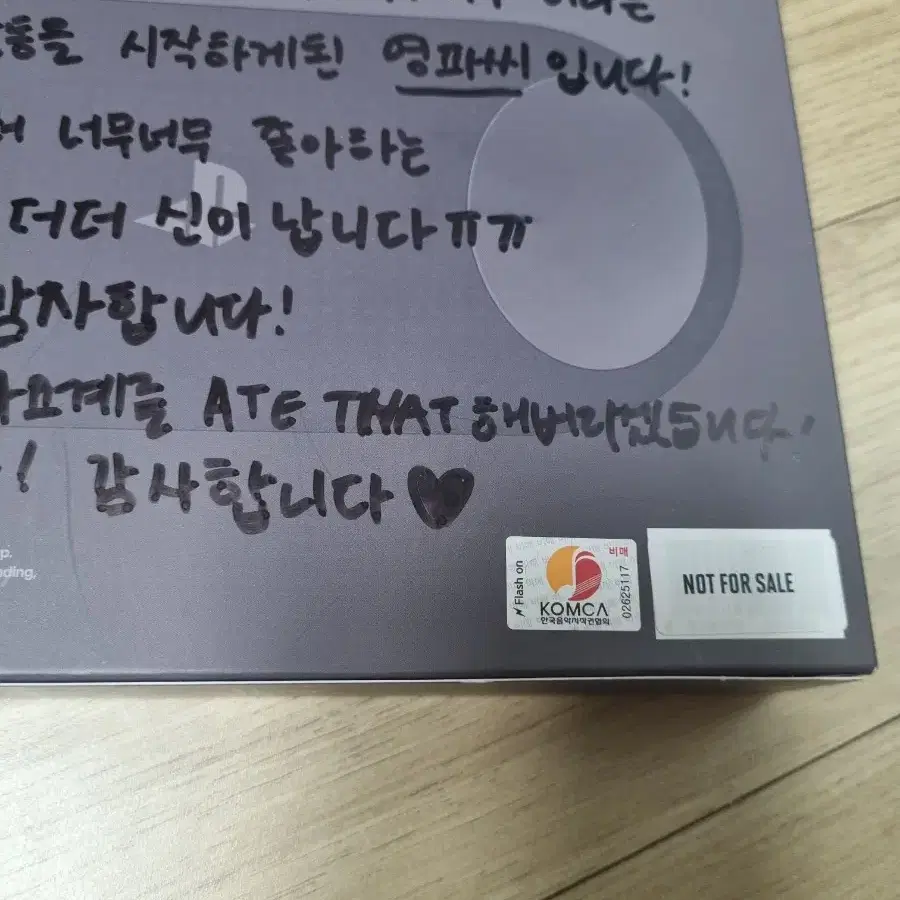 시작하게된 영파씨 입니다!
너무너무 좋아하는
더더 신이 납니다ㅠㅠ
감사합니다!
ATE THAT 해버리겠습니다.
! 감사합니다♥
p.
ading,
Flash on
비매
KOMCA
한국음악저작권협회
02625117
NOT FOR SALE